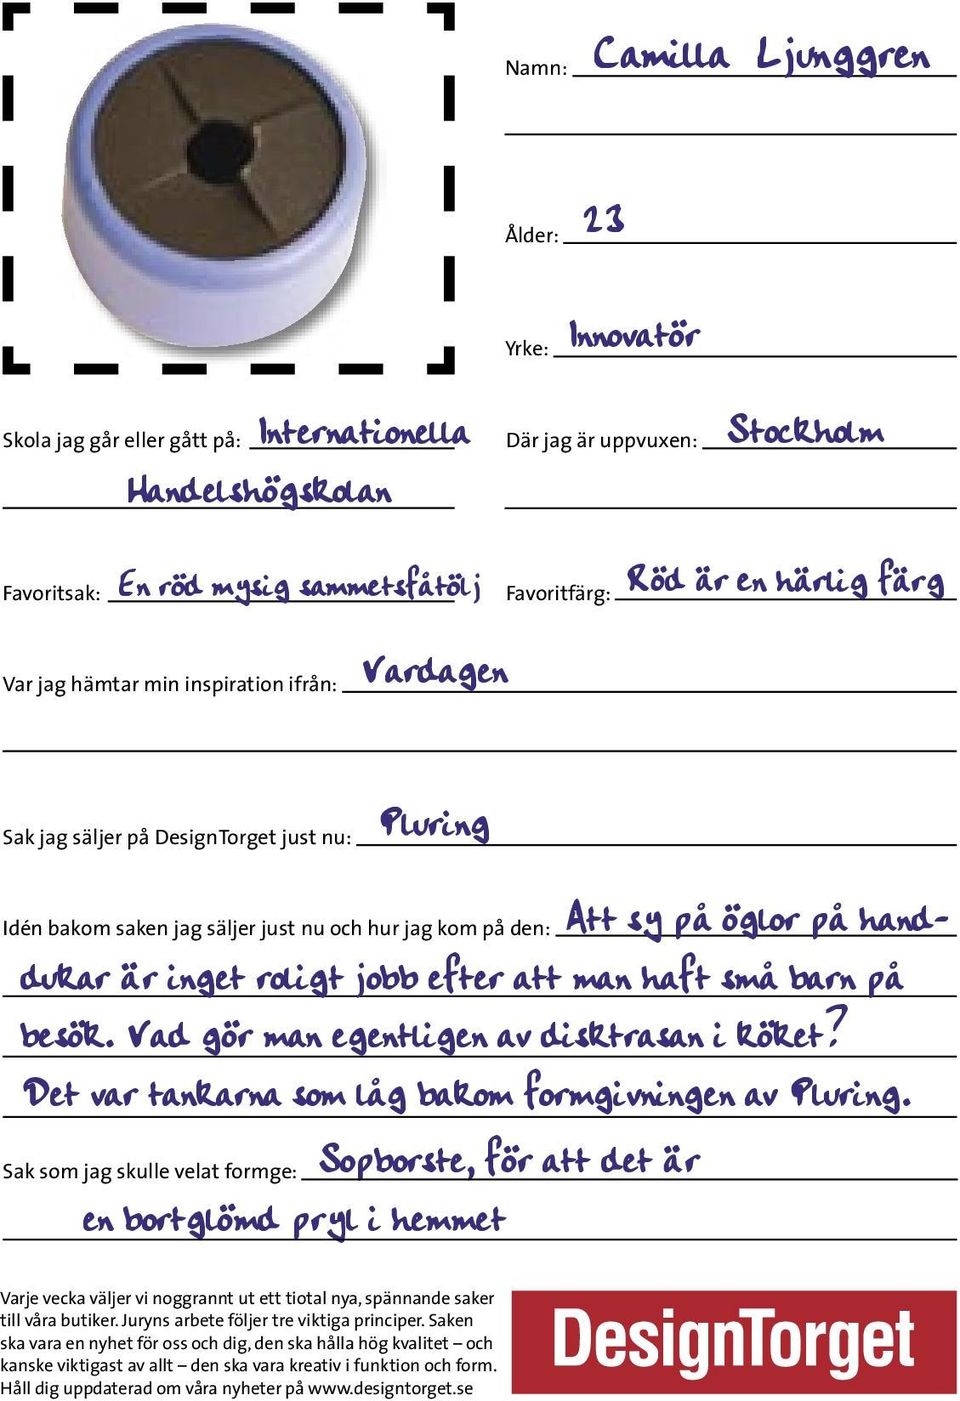 Namn: Camilla Ljunggren
Ålder: 23
Yrke: Innovatör
Skola jag går eller gått på: Internationella
Handelshögskolan
Där jag är uppvuxen: Stockholm
Favoritsak: En röd mysig sammetsfåtölj
Favoritfärg: Röd är en härlig färg
Var jag hämtar min inspiration ifrån: Vardagen
Sak jag säljer på DesignTorget just nu: Pluring
Idén bakom saken jag säljer just nu och hur jag kom på den: Att sy på öglor på hand-
dukar är inget roligt jobb efter att man haft små barn på
besök. Vad gör man egentligen av disktrasan i köket?
Det var tankarna som låg bakom formgivningen av Pluring.
Sak som jag skulle velat formge: Sopborste, för att det är
en bortglömd pryl i hemmet
Varje vecka väljer vi noggrannt ut ett tiotal nya, spännande saker
till våra butiker. Juryns arbete följer tre viktiga principer. Saken
ska vara en nyhet för oss och dig, den ska hålla hög kvalitet – och
kanske viktigast av allt – den ska vara kreativ i funktion och form.
Håll dig uppdaterad om våra nyheter på www.designtorget.se
DesignTorget